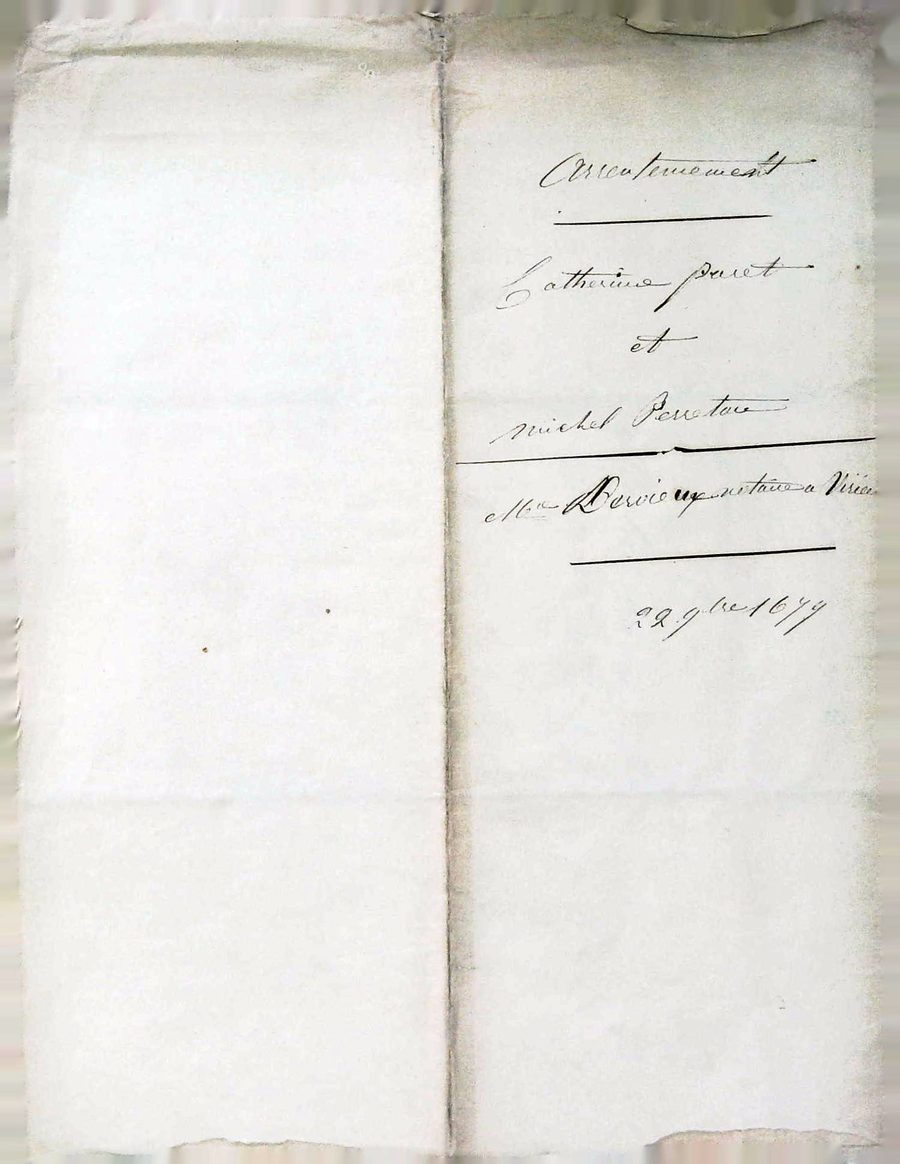 Arrentemement
Catherine paret
et
michel Perretou
Me Dervieux notaire a Virieu
22 9bre 1679